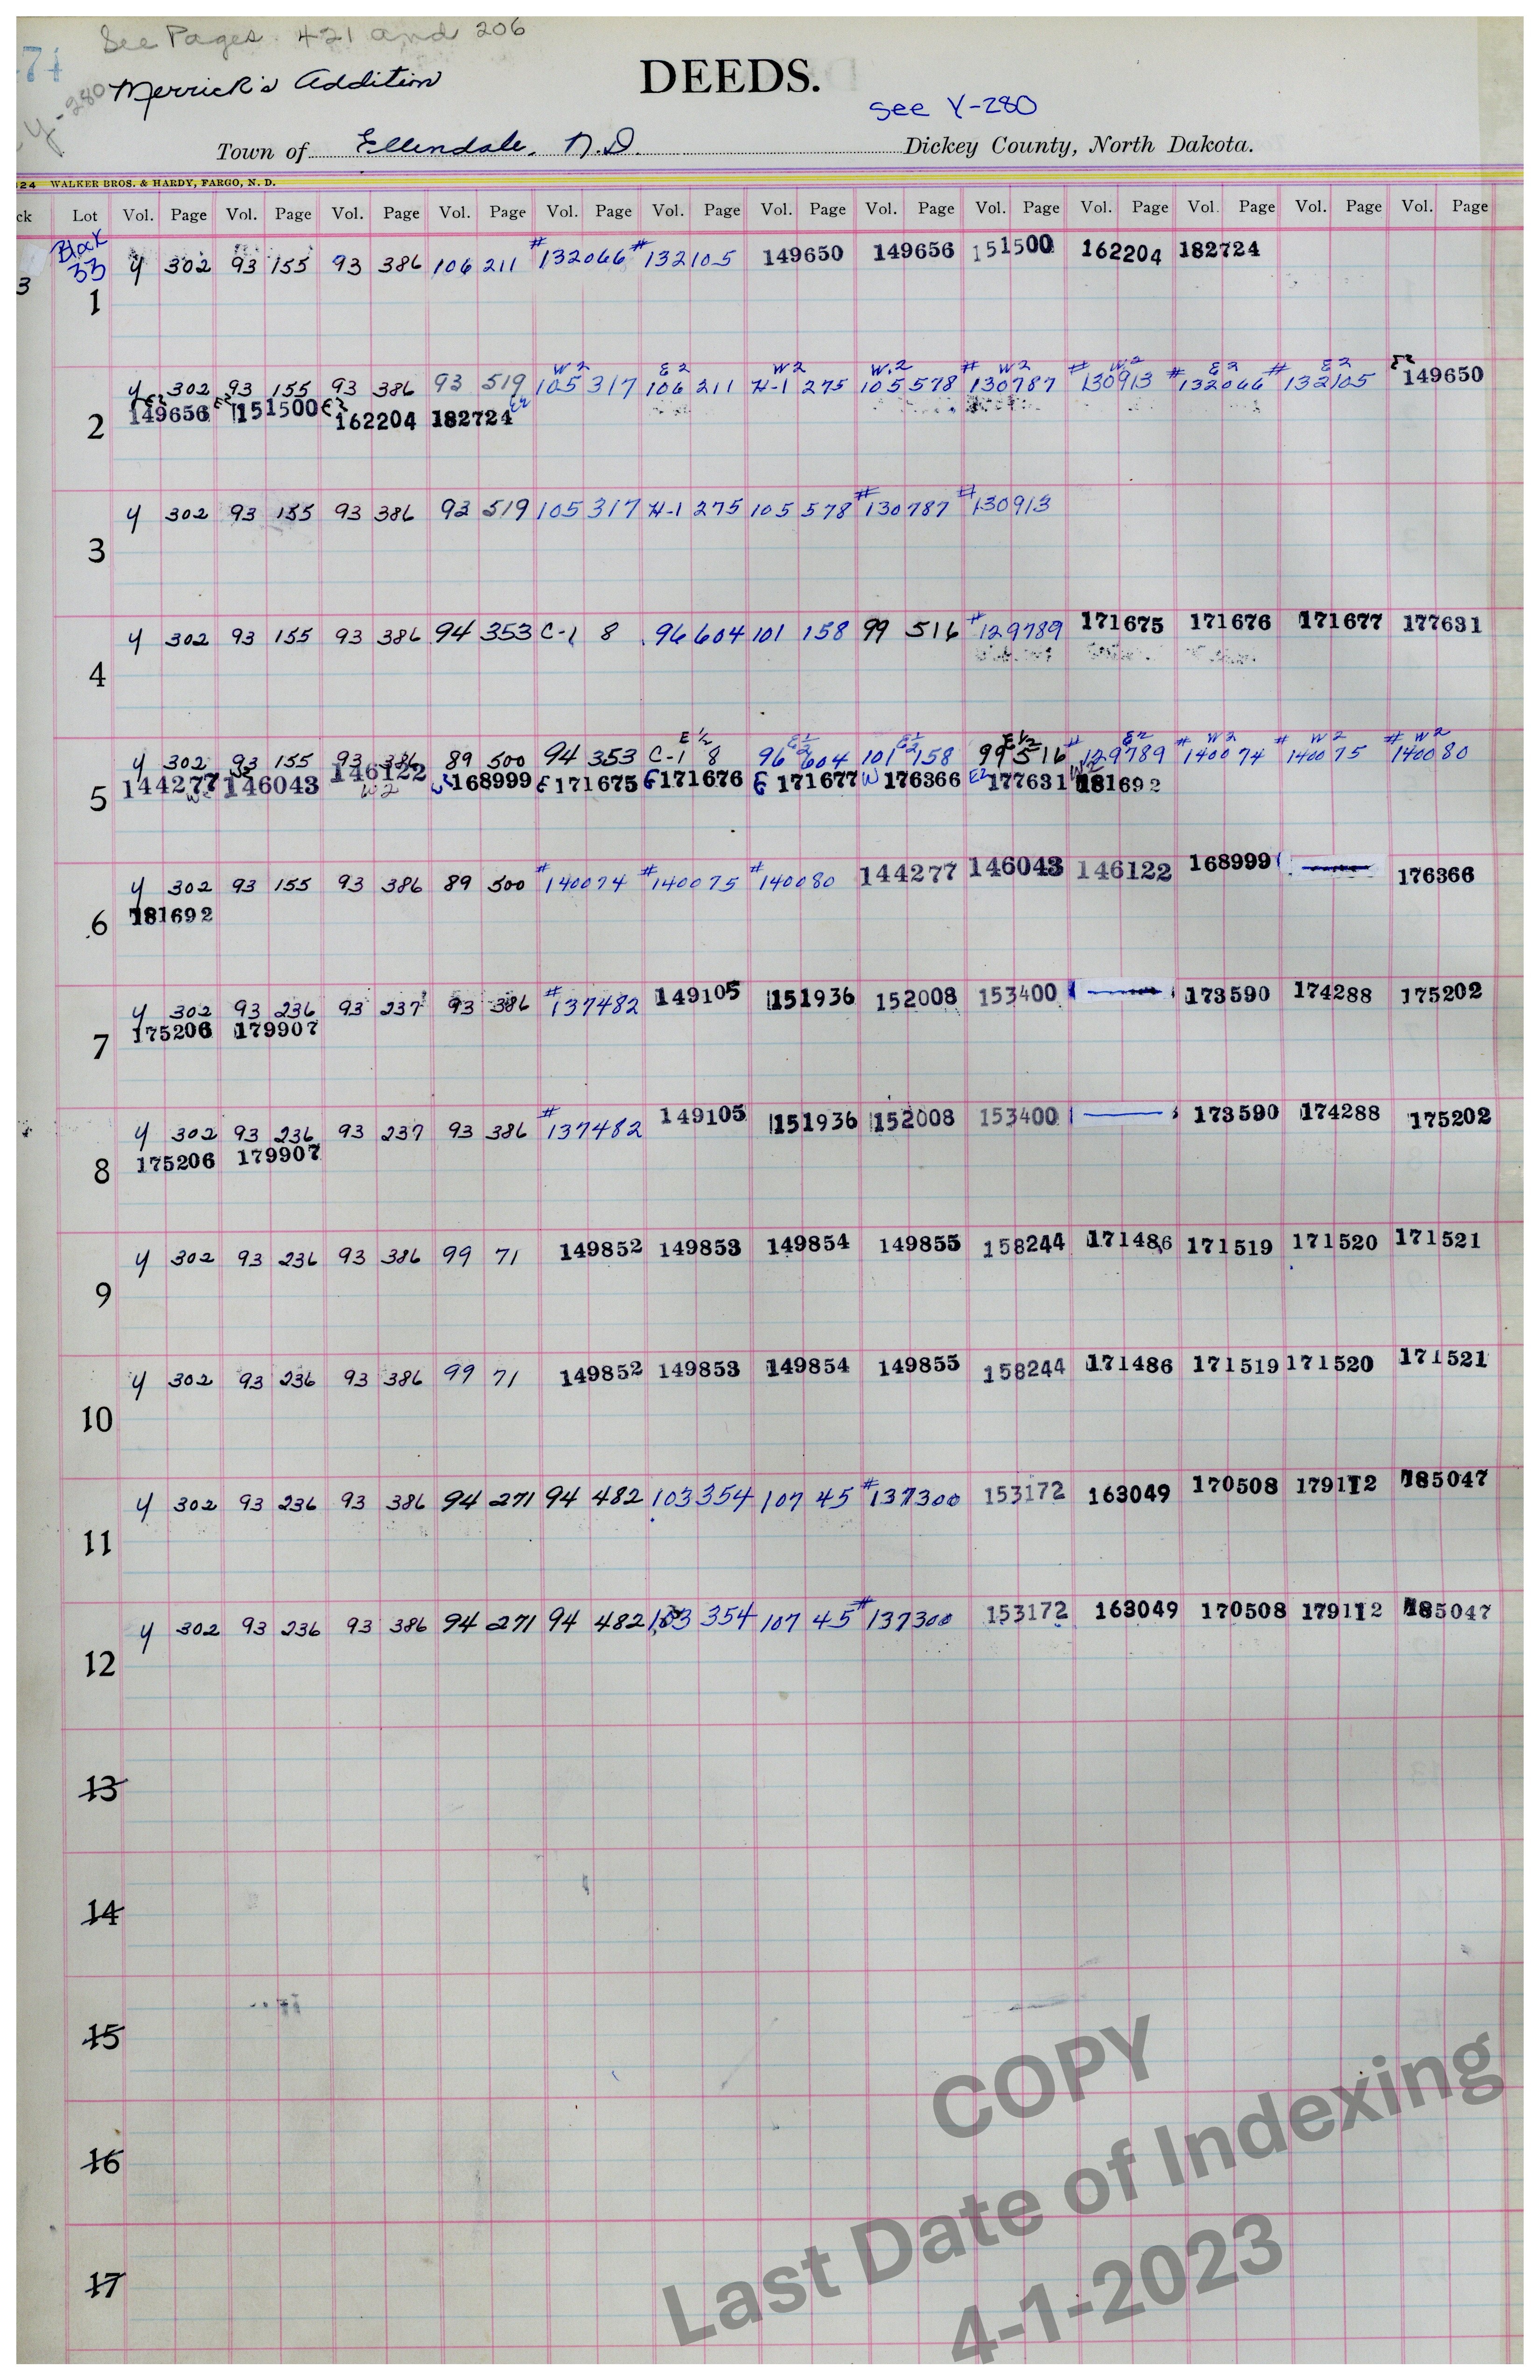 See Pages 421 and 206
Merrick's Addition
DEEDS.
y-280
See Y-280
Town of Ellendale, N.D. Dickey County, North Dakota.
124 WALKER BROS. & HARDY, FARGO, N. D.
ck Lot Vol. Page Vol. Page Vol. Page Vol. Page Vol. Page Vol. Page Vol. Page Vol. Page Vol. Page Vol. Page Vol. Page Vol. Page Vol. Page
Block
33 y 302 93 155 93 386 106 211 #132066 #132105 149650 149656 151500 162204 182724
3
1
W2 E2 W2 W.2 W2 W2 E2 E2 E2
y 302 93 155 93 386 93 519 105 317 106 211 H-1 275 105 578 #130787 #130913 #132066 #132105 149650
E2 149656 E2 151500 E2 162204 182724 E2
2
y 302 93 155 93 386 93 519 105 317 H-1 275 105 578 #130787 #130913
3
y 302 93 155 93 386 94 353 C-1 8 96 604 101 158 99 516 #129789 171675 171676 171677 177631
4
E 1/2 E 1/2 E 1/2 E 1/2 E2 W2 W2 W2
y 302 93 155 93 386 89 500 94 353 C-1 8 96 604 101 158 99 516 #129789 #140074 #140075 #140080
144277 146043 146122 168999 E 171675 E 171676 E 171677 W 176366 E2 177631 W2 181692
W2
5
y 302 93 155 93 386 89 500 #140074 #140075 #140080 144277 146043 146122 168999 176366
181692
6
y 302 93 236 93 237 93 386 #137482 149105 151936 152008 153400 173590 174288 175202
175206 179907
7
y 302 93 236 93 237 93 386 #137482 149105 151936 152008 153400 173590 174288 175202
175206 179907
8
y 302 93 236 93 386 99 71 149852 149853 149854 149855 158244 171486 171519 171520 171521
9
y 302 93 236 93 386 99 71 149852 149853 149854 149855 158244 171486 171519 171520 171521
10
y 302 93 236 93 386 94 271 94 482 103 354 107 45 #137300 153172 163049 170508 179112 185047
11
y 302 93 236 93 386 94 271 94 482 103 354 107 45 #137300 153172 163049 170508 179112 185047
12
13
14
15
16
17
COPY
Last Date of Indexing
4-1-2023